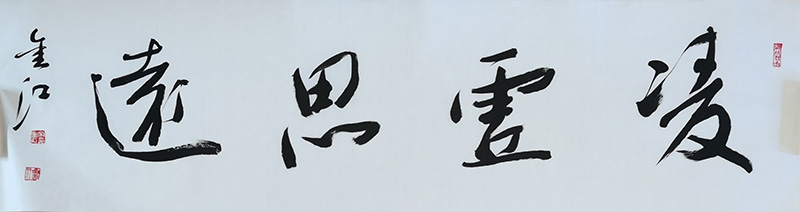 凌雲思遠
金江